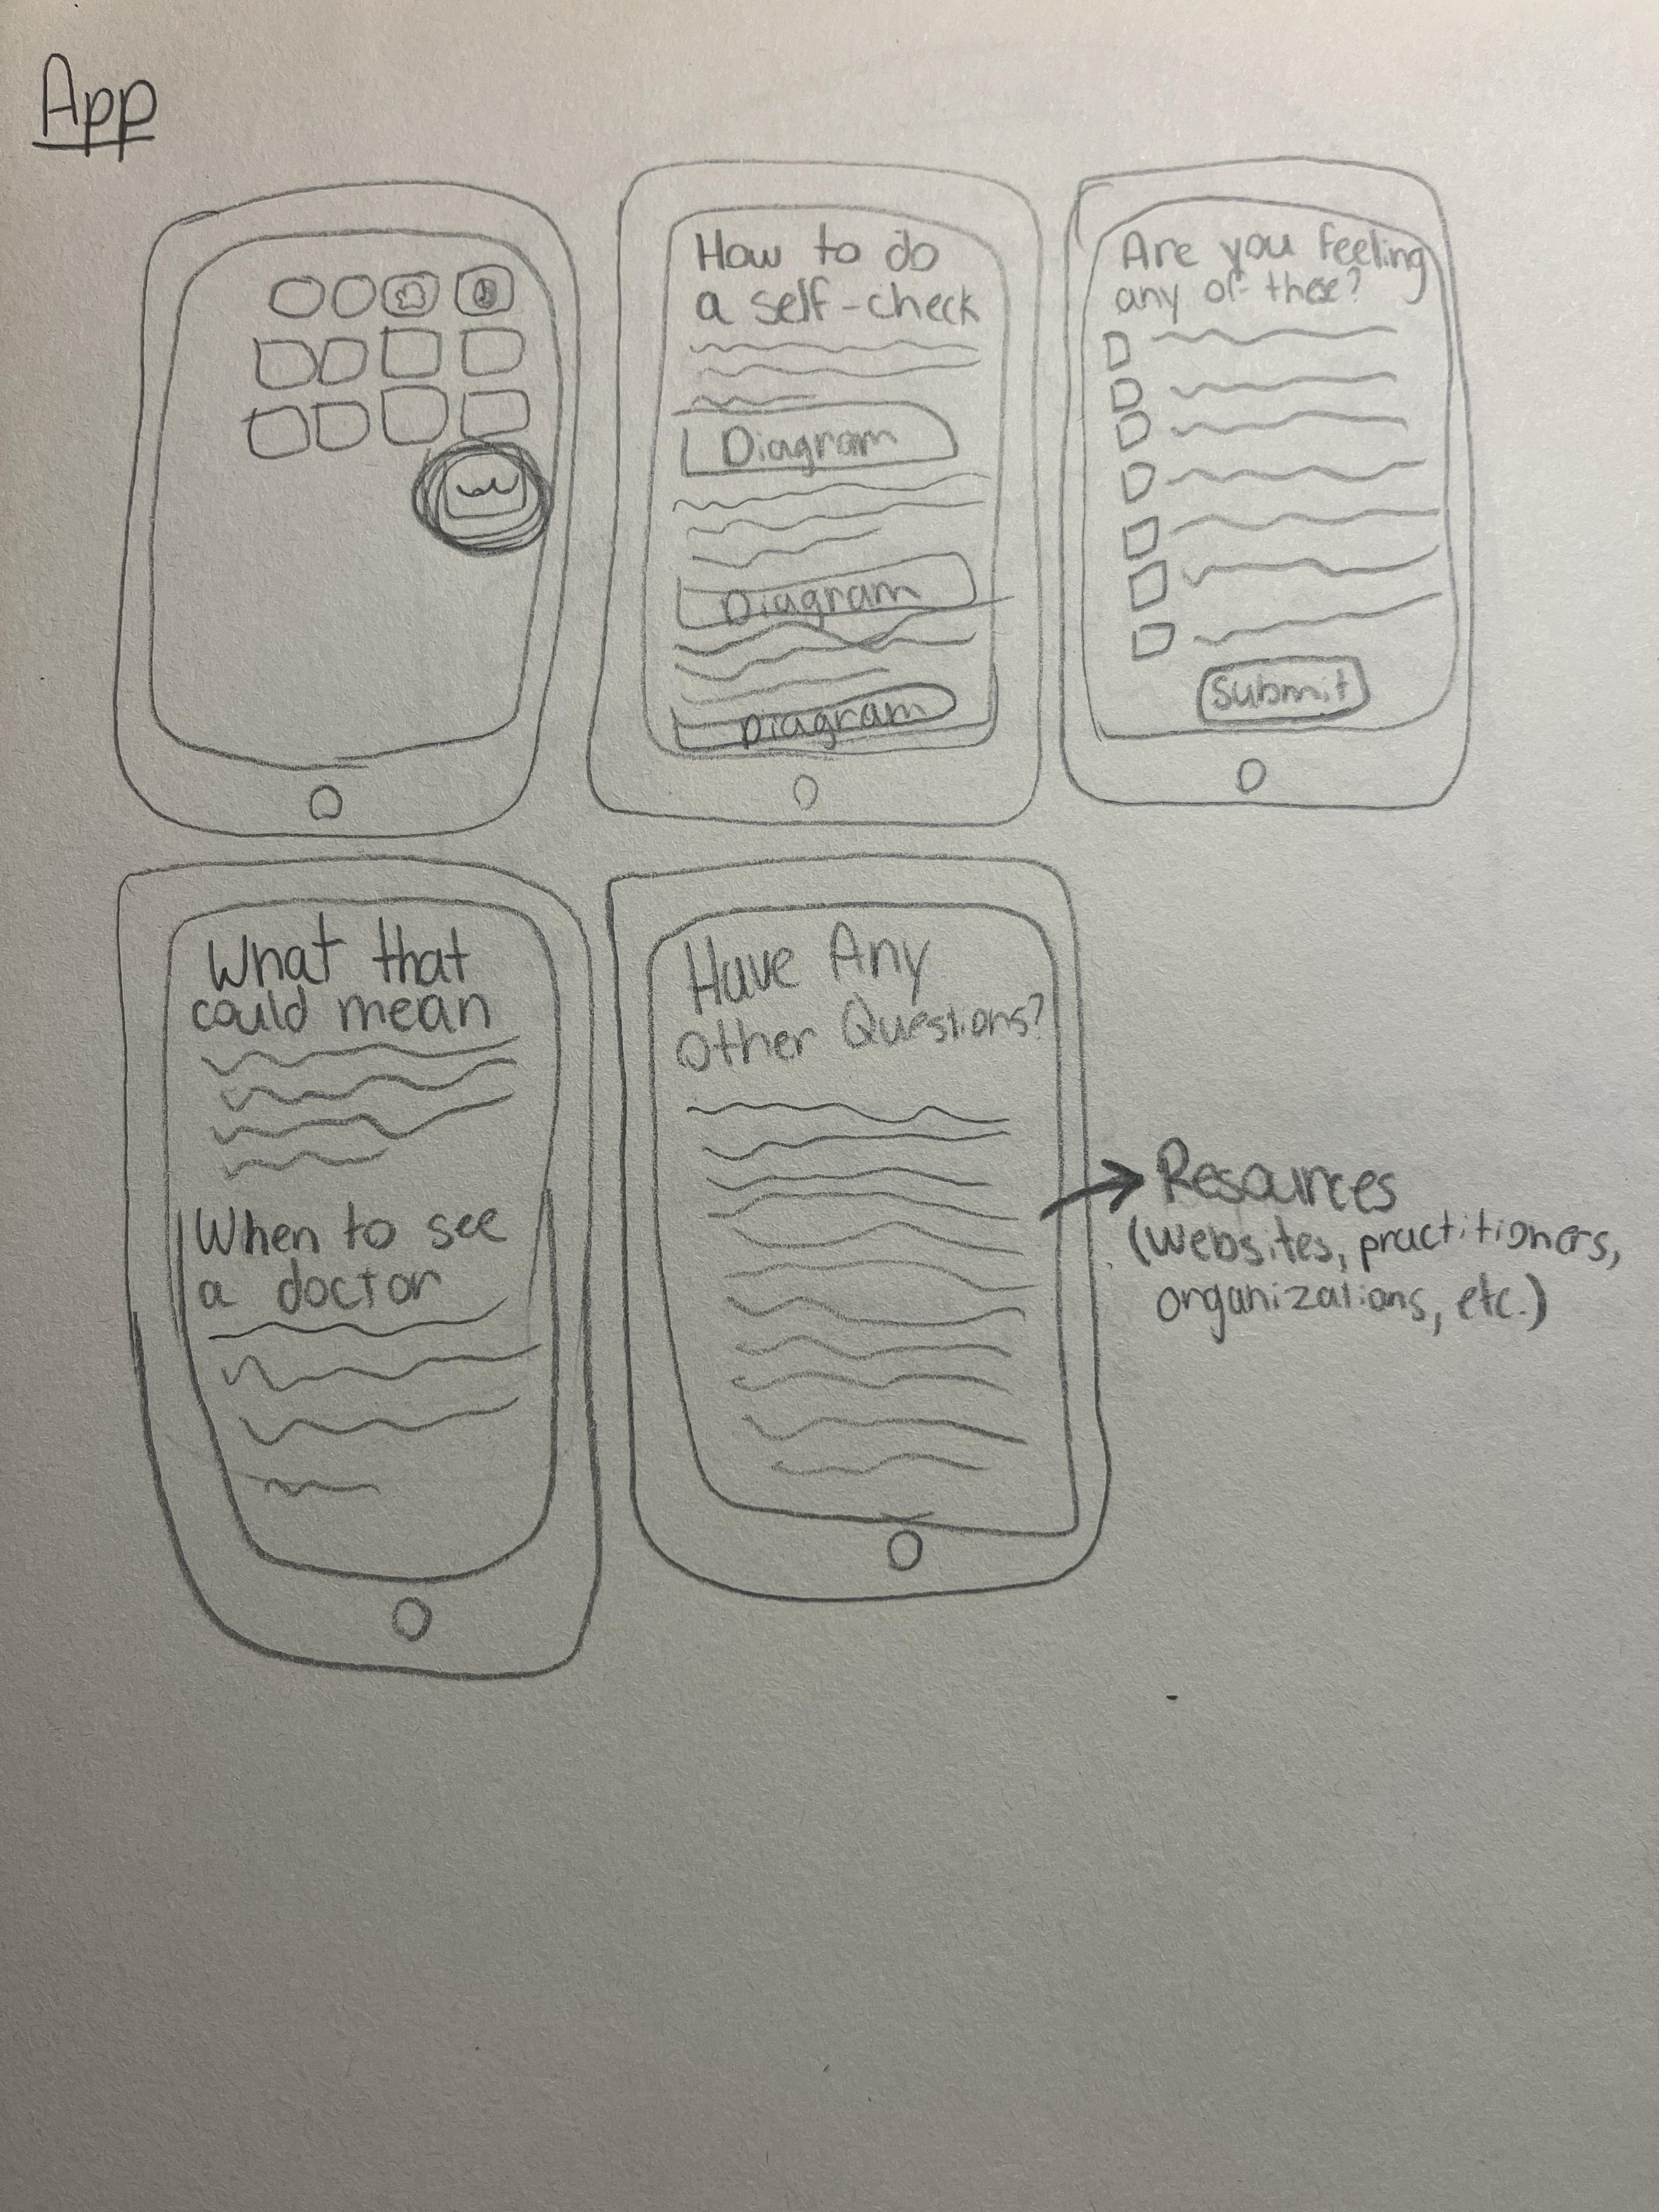 App
How to do
a self-check
Diagram
Diagram
Diagram
Are you feeling
any of these?
Submit
What that
could mean
When to see
a doctor
Have Any
Other Questions?
Resources
(websites, practitioners,
organizations, etc.)